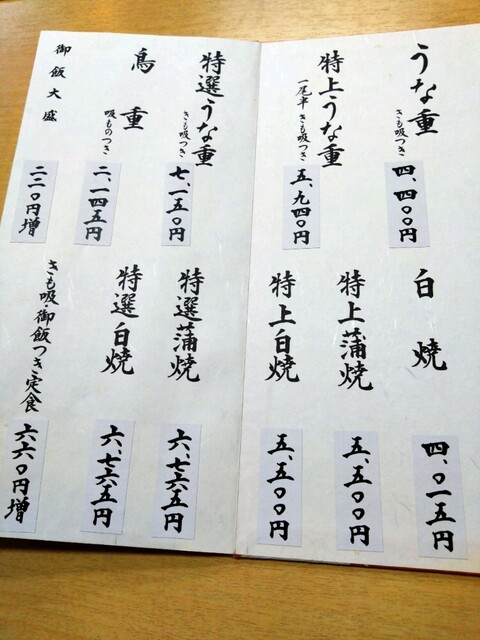 うな重
きも吸つき
四、四〇〇円
特上うな重
一尾半 きも吸つき
五、九四〇円
白焼
四、〇一五円
特上蒲焼
五、五〇〇円
特上白焼
五、五〇〇円
特選うな重
きも吸つき
七、一五〇円
鳥重
吸ものつき
二、一四五円
御飯大盛
二二〇円増
特選蒲焼
六、七六五円
特選白焼
六、七六五円
きも吸・御飯つき定食
六六〇円増